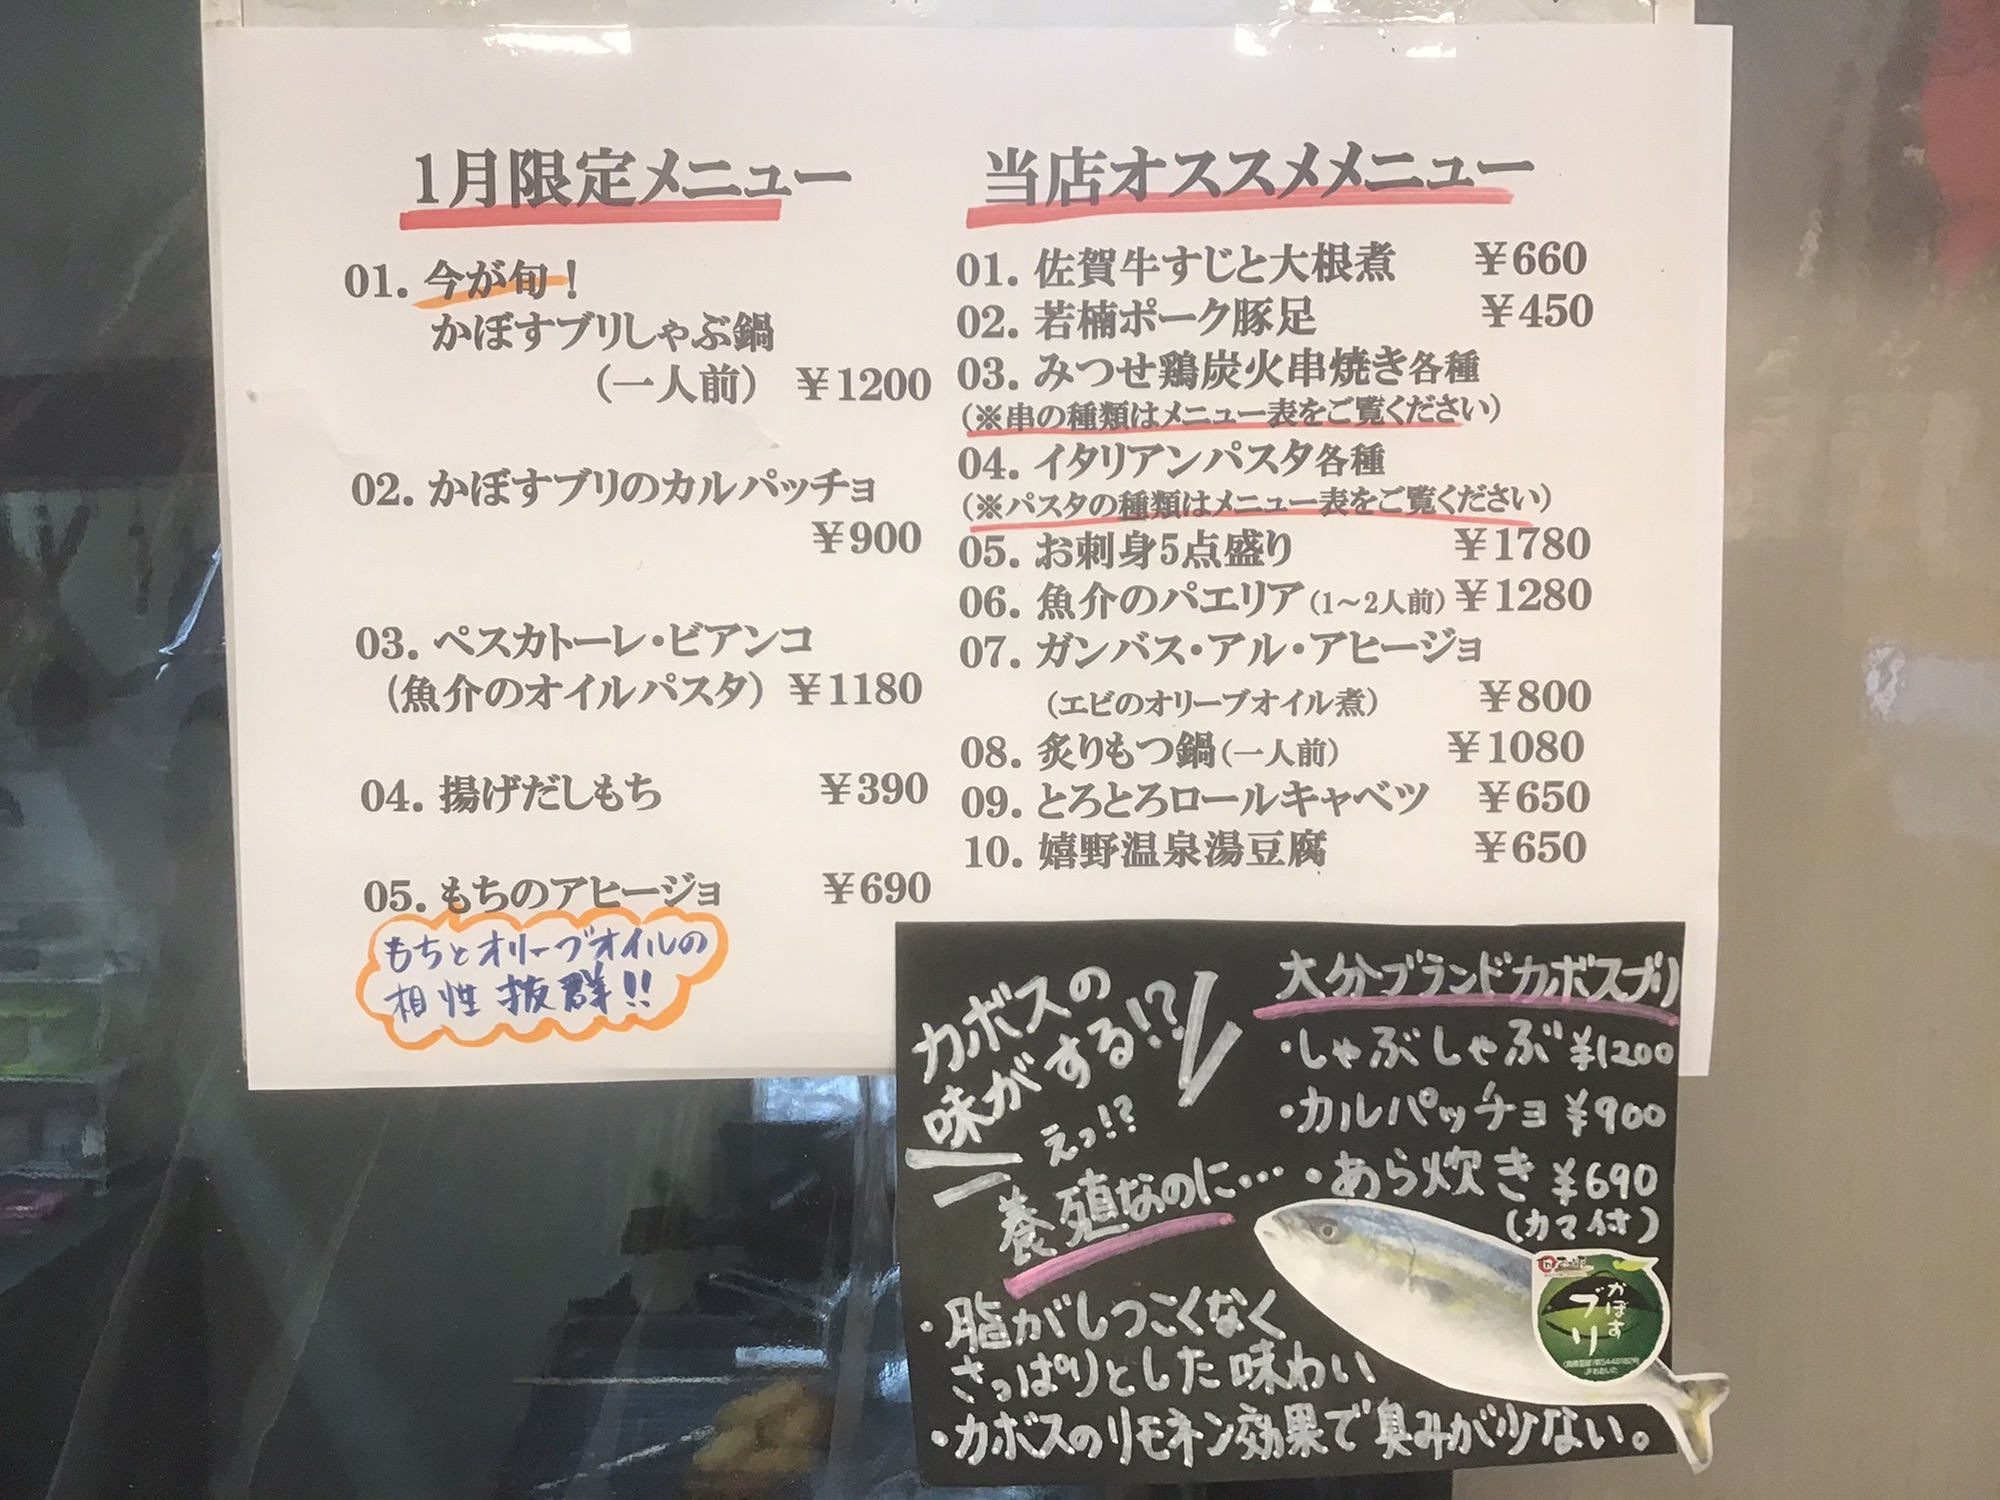 1月限定メニュー
01. 今が旬！
かぼすブリしゃぶ鍋
（一人前） ￥1200
02. かぼすブリのカルパッチョ
￥900
03. ペスカトーレ・ビアンコ
（魚介のオイルパスタ） ￥1180
04. 揚げだしもち ￥390
05. もちのアヒージョ ￥690
もちとオリーブオイルの
相性抜群!!
当店オススメメニュー
01. 佐賀牛すじと大根煮 ￥660
02. 若楠ポーク豚足 ￥450
03. みつせ鶏炭火串焼き各種
（※串の種類はメニュー表をご覧ください）
04. イタリアンパスタ各種
（※パスタの種類はメニュー表をご覧ください）
05. お刺身5点盛り ￥1780
06. 魚介のパエリア（1～2人前） ￥1280
07. ガンバス・アル・アヒージョ
（エビのオリーブオイル煮） ￥800
08. 炙りもつ鍋（一人前） ￥1080
09. とろとろロールキャベツ ￥650
10. 嬉野温泉湯豆腐 ￥650
カボスの
味がする!?
えっ!?
養殖なのに…
大分ブランドカボスブリ
・しゃぶしゃぶ ¥1200
・カルパッチョ ¥900
・あら炊き ¥690
（カマ付）
・脂がしつこくなく
さっぱりとした味わい
・カボスのリモネン効果で臭みが少ない。
かぼす
ブリ